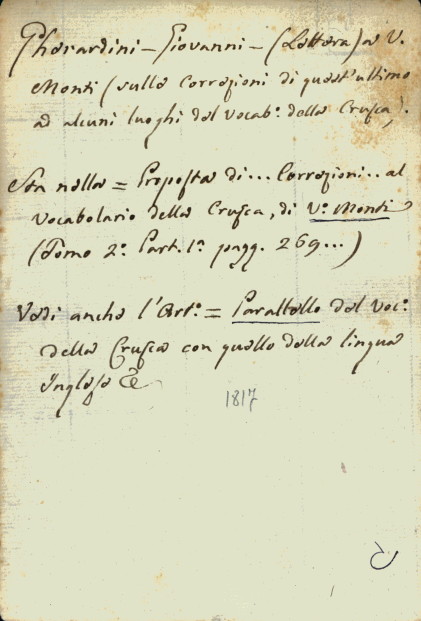 Gherardini – Giovanni – (Lettera) a V.
Monti (sulle Correzioni di quest'ultimo
ad alcuni luoghi del Vocab.° della Crusca).
Sta nella = Proposta di... Correzioni.. al
Vocabolario della Crusca, di V.° Monti
(Tomo 2.° Part. 1.ª pagg. 269...)
Vedi anche l'Art.° = Parallello del Voc.°
della Crusca con quello della lingua
Inglese &
1817